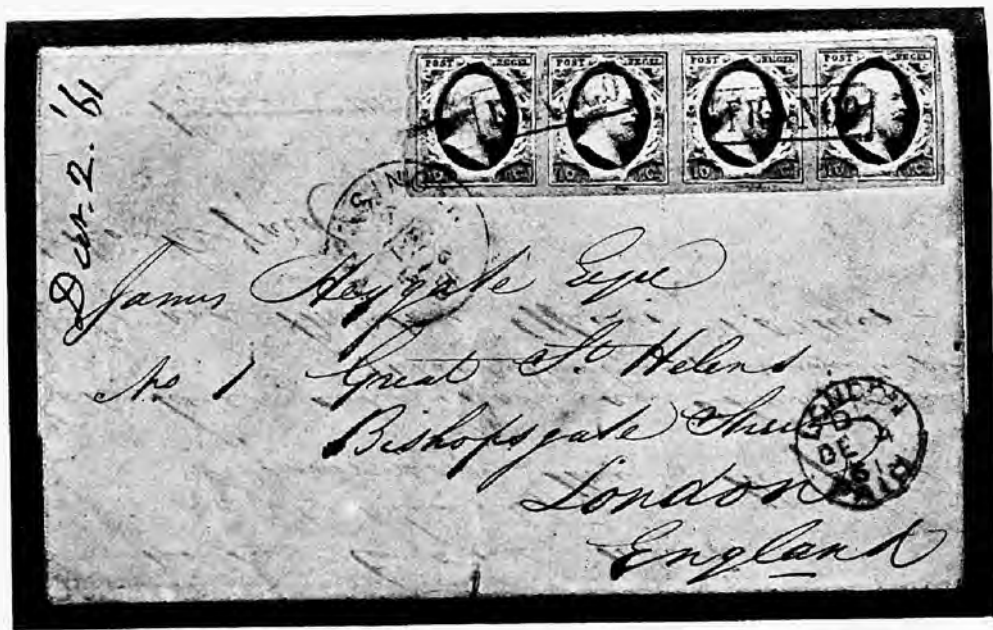 Dec. 2. '61
POST ZEGEL
POST ZEGEL
POST ZEGEL
POST ZEGEL
FRANCO
10 C.
10 C.
10 C.
10 C.
James Heygate Esqre
No 1 Great St Helens
Bishopsgate Street
London
England
LONDON
DE 4
61
PAID